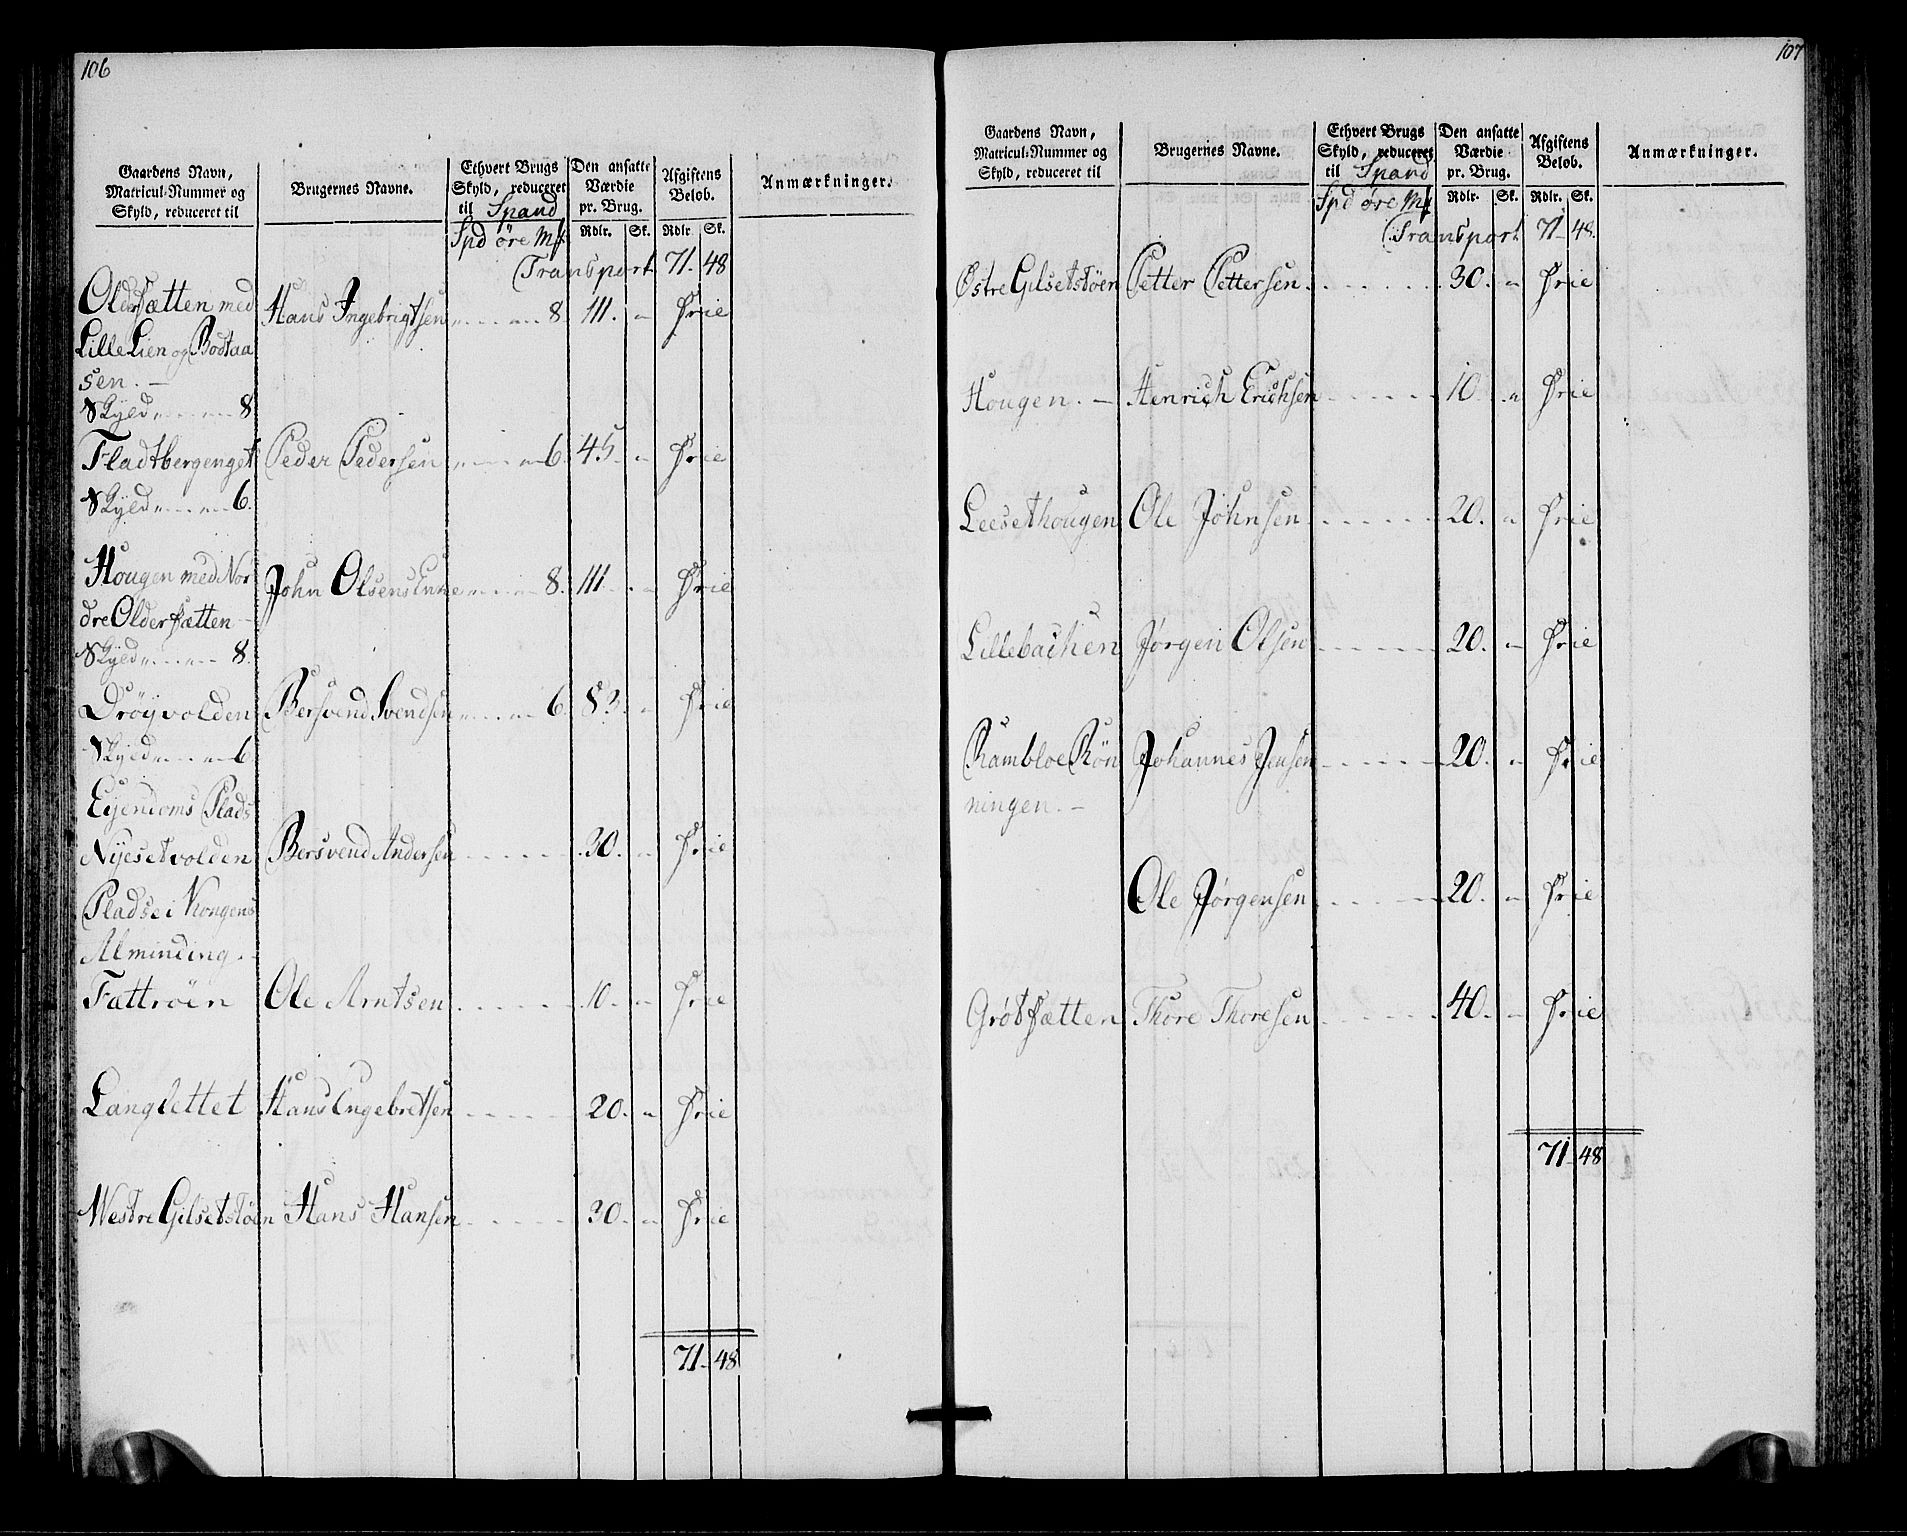 106
Gaardens Navn, Matricul-Nummer og Skyld, reduceret til
Brugernes Navne.
Ethvert Brugs Skyld, reduceret til Spand
Den ansatte Værdie pr. Brug.
Afgiftens Beløb.
Anmærkninger.
Spd öre Mk Rdlr. Sk. Rdlr. Sk.
Transport 71. 48
Oldersætten med Hans Ingebrigtsen „ „ 8. 111. „ Frie
Lille Lien og Bodtaa
sen. —
Skyld „ „ 8
Fladtbergenget Peder Pedersen „ „ 6. 45. „ Frie
Skyld „ „ 6.
Hougen med Nor John Olsens Enke „ „ 8. 111. „ Frie
dre Oldersætten —
Skyld „ „ 8.
Dröyvolden Bersvend Svendsen „ „ 6. 83. „ Frie
Skyld „ „ 6
Eijendoms Plads
Nyesetvolden Bersvend Andersen 30. „ Frie
Pladse i Kongens
Alminding.
Fættröen Ole Arntsen 10. „ Frie
Langlettet Hans Ingebretsen 20. „ Frie
Westre Gilsetstöen Hans Hansen 30. „ Frie
71. 48
107
Gaardens Navn, Matricul-Nummer og Skyld, reduceret til
Brugernes Navne.
Ethvert Brugs Skyld, reduceret til Spand
Den ansatte Værdie pr. Brug.
Afgiftens Beløb.
Anmærkninger.
Spd öre Mk Rdlr. Sk. Rdlr. Sk.
Transport 71. 48.
Østre Gilsetstöen Petter Pettersen 30. „ Frie
Hougen. — Henrich Erichsen 10. „ Frie
Leesethougen Ole Johnsen 20. „ Frie
Lillebachen Jørgen Olsen 20. „ Frie
Rambloe Rön Johannes Jensen 20. „ Frie
ningen. —
Ole Jørgensen 20. „ Frie
Grötsætten Thore Thoresen 40. „ Frie
71. 48